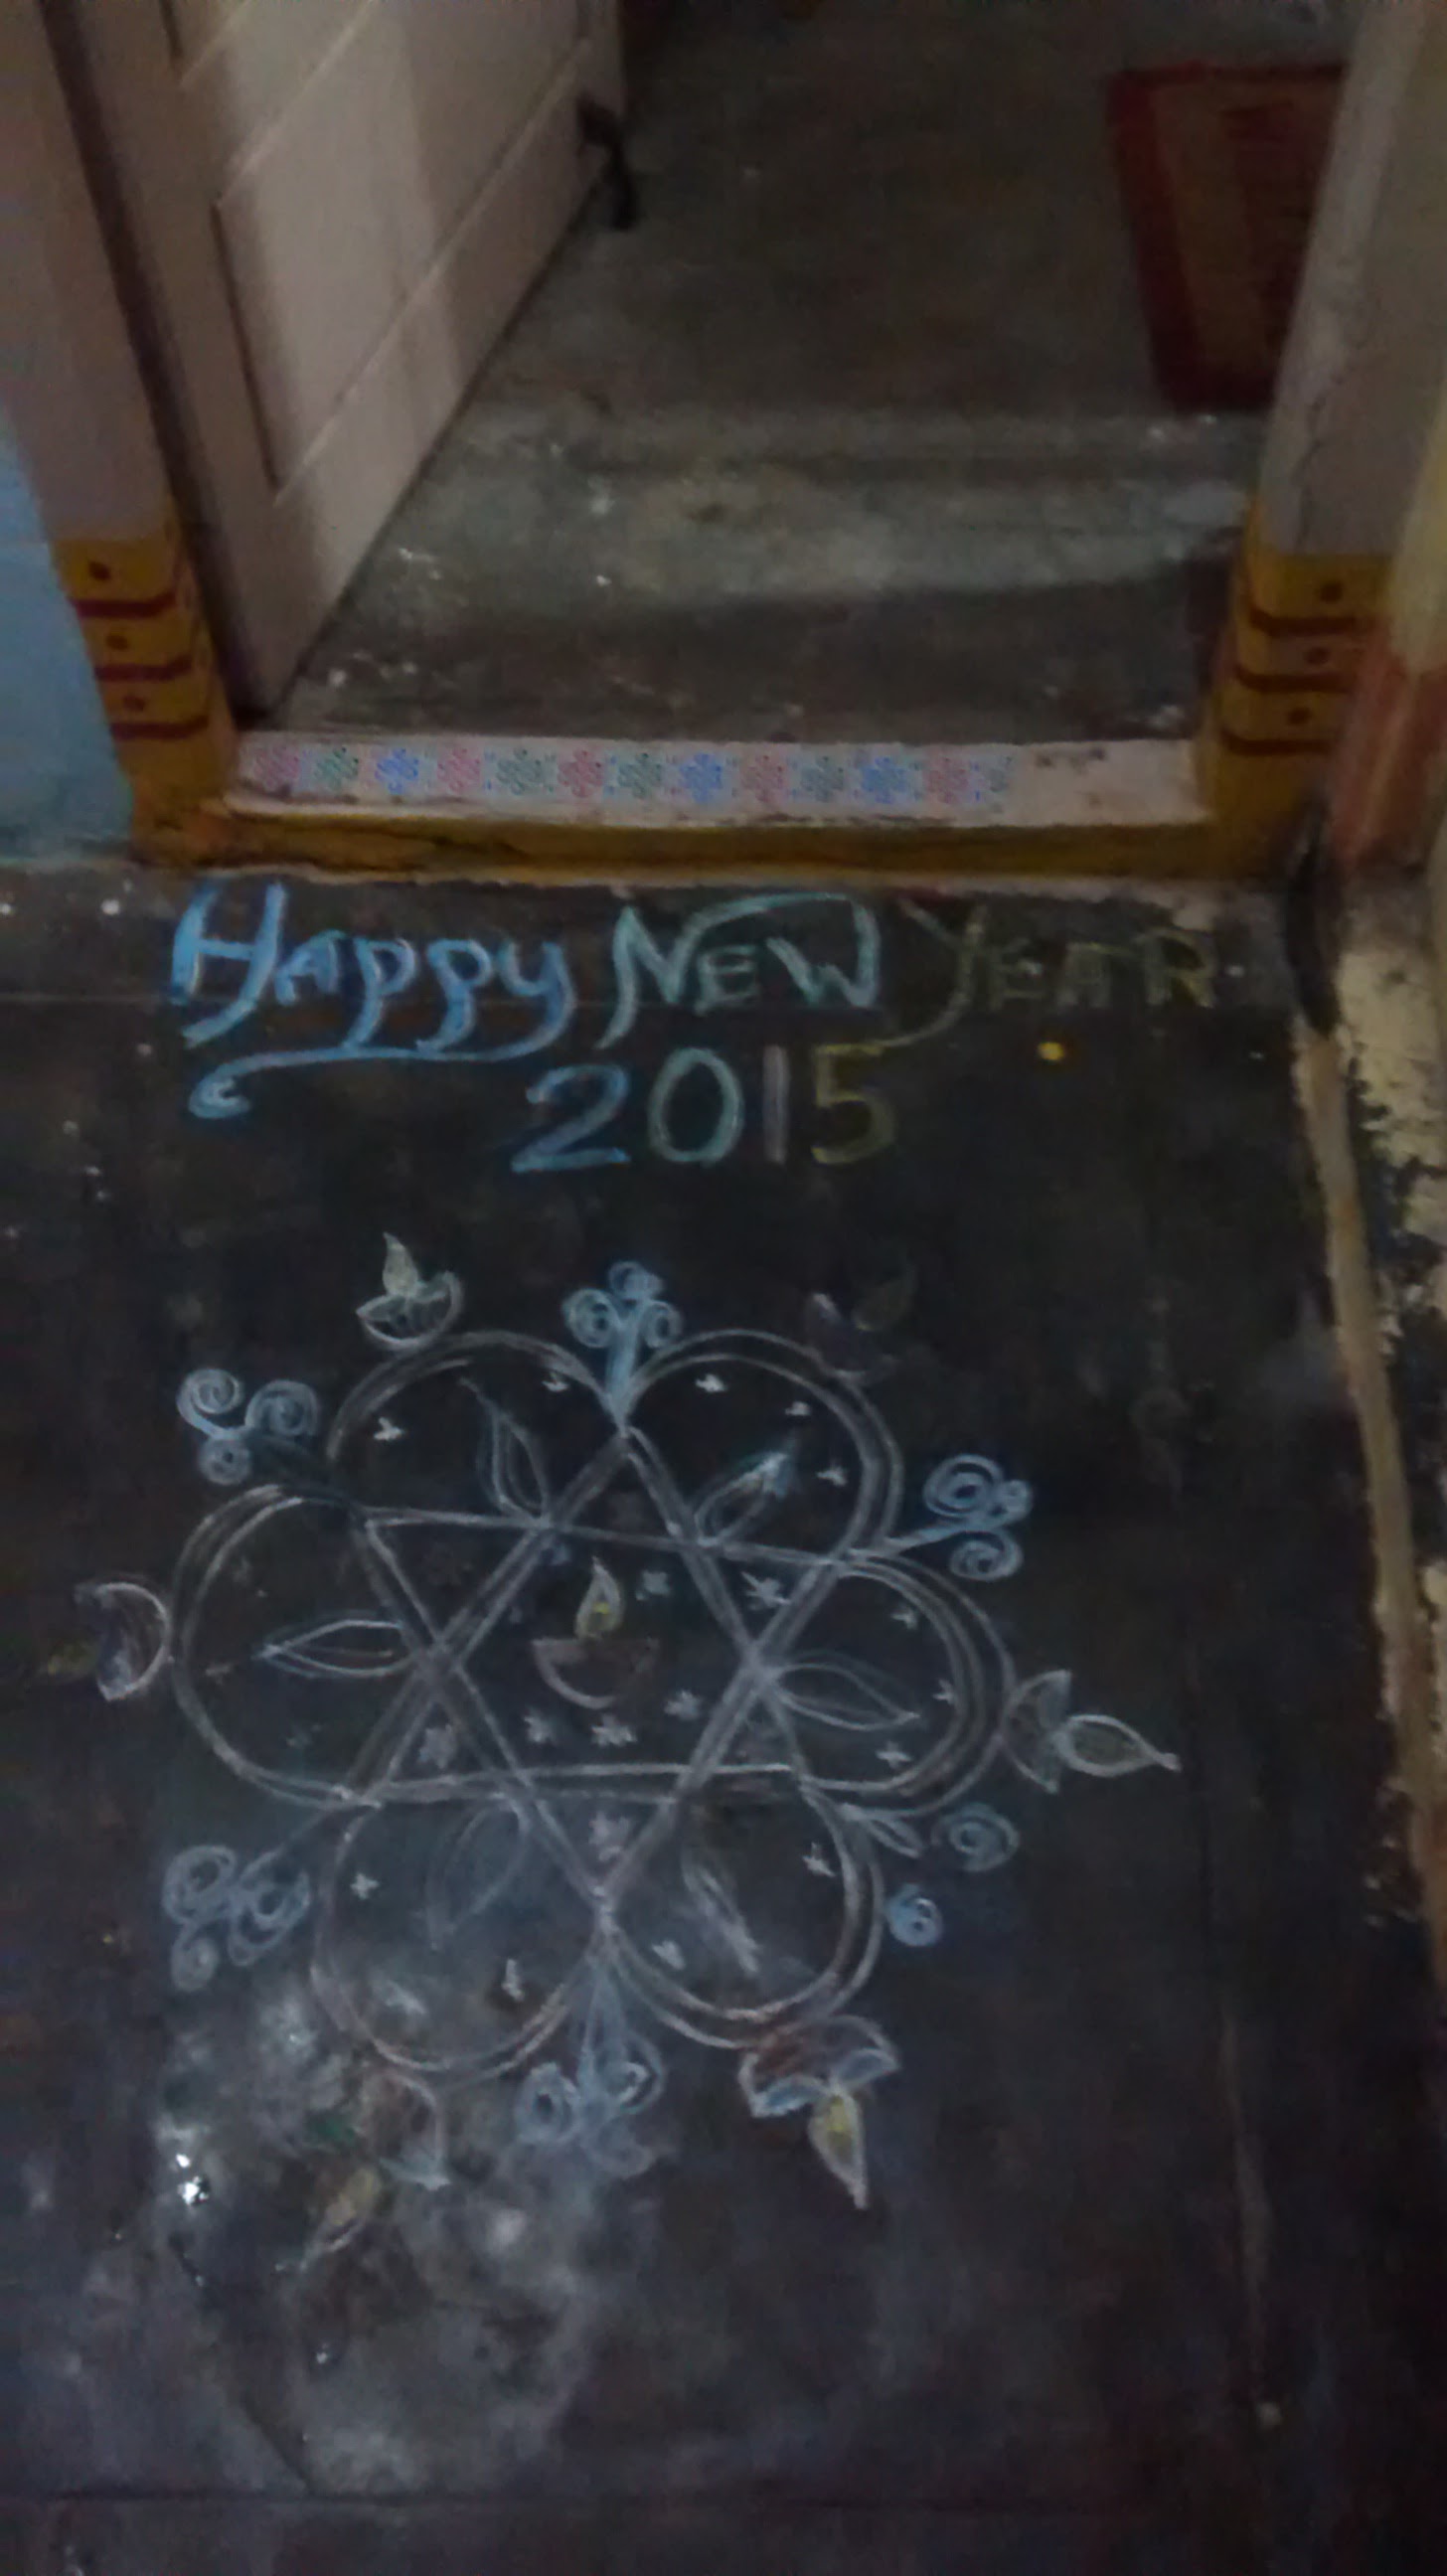 HAPPY NEW YEAR
2015